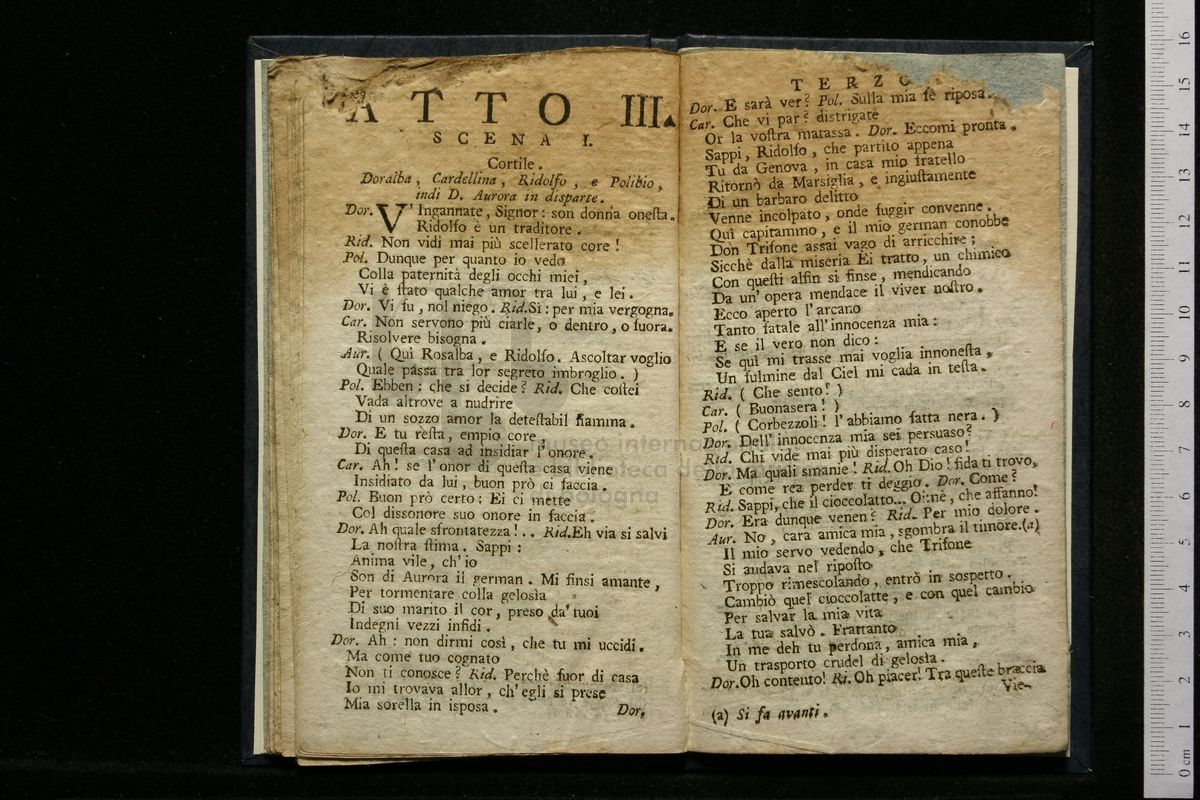 ATTO III.
SCENA I.
Cortile.
Doralba, Cardellina, Ridolfo, e Polibio,
indi D. Aurora in disparte.
Dor. V'Ingannate, Signor: son donna onesta.
Ridolfo è un traditore.
Rid. Non vidi mai più scellerato core!
Pol. Dunque per quanto io vedo
Colla paternità degli occhi miei,
Vi è stato qualche amor tra lui, e lei.
Dor. Vi fu, nol niego. Rid. Si: per mia vergogna.
Car. Non servono più ciarle, o dentro, o fuora.
Risolvere bisogna.
Aur. ( Quì Rosalba, e Ridolfo. Ascoltar voglio
Quale passa tra lor segreto imbroglio. )
Pol. Ebben: che si decide? Rid. Che costei
Vada altrove a nudrire
Di un sozzo amor la detestabil fiamma.
Dor. E tu resta, empio core,
Di questa casa ad insidiar l'onore.
Car. Ah! se l'onor di questa casa viene
Insidiato da lui, buon prò ci faccia.
Pol. Buon prò certo: Ei ci mette
Col dissonore suo onore in faccia.
Dor. Ah quale sfrontatezza!.. Rid. Eh via si salvi
La nostra stima. Sappi:
Anima vile, ch'io
Son di Aurora il german. Mi finsi amante,
Per tormentare colla gelosia
Di suo marito il cor, preso da' tuoi
Indegni vezzi infidi.
Dor. Ah: non dirmi così, che tu mi uccidi.
Ma come tuo cognato
Non ti conosce? Rid. Perchè fuor di casa
Io mi trovava allor, ch'egli si prese
Mia sorella in isposa.
Dor.
TERZO
Dor. E sarà ver? Pol. Sulla mia fè riposa.
Car. Che vi par? distrigate
Or la vostra matassa. Dor. Eccomi pronta.
Sappi, Ridolfo, che partito appena
Tu da Genova, in casa mio fratello
Ritornò da Marsiglia, e ingiustamente
Di un barbaro delitto
Venne incolpato, onde fuggir convenne.
Quì capitammo, e il mio german conobbe
Don Trifone assai vago di arricchire;
Sicchè dalla miseria Ei tratto, un chimico
Con questi alfin si finse, mendicando
Da un' opera mendace il viver nostro.
Ecco aperto l'arcano
Tanto fatale all'innocenza mia:
E se il vero non dico:
Se quì mi trasse mai voglia innonesta,
Un fulmine dal Ciel mi cada in testa.
Rid. ( Che sento! )
Car. ( Buonasera! )
Pol. ( Corbezzoli! l'abbiamo fatta nera. )
Dor. Dell'innocenza mia sei persuaso?
Rid. Chi vide mai più disperato caso!
Dor. Ma quali smanie! Rid. Oh Dio! fida ti trovo,
E come rea perder ti deggio. Dor. Come?
Rid. Sappi, che il cioccolatto... Oimè, che affanno!
Dor. Era dunque venen? Rid. Per mio dolore.
Aur. No, cara amica mia, sgombra il timore.(a)
Il mio servo vedendo, che Trifone
Si andava nel riposto
Troppo rimescolando, entrò in sospetto.
Cambiò quel cioccolatte, e con quel cambio
Per salvar la mia vita
La tua salvò. Frattanto
In me deh tu perdona, amica mia,
Un trasporto crudel di gelosia.
Dor. Oh contento! Ri. Oh piacer! Tra queste braccia
Vie-
(a) Si fa avanti.